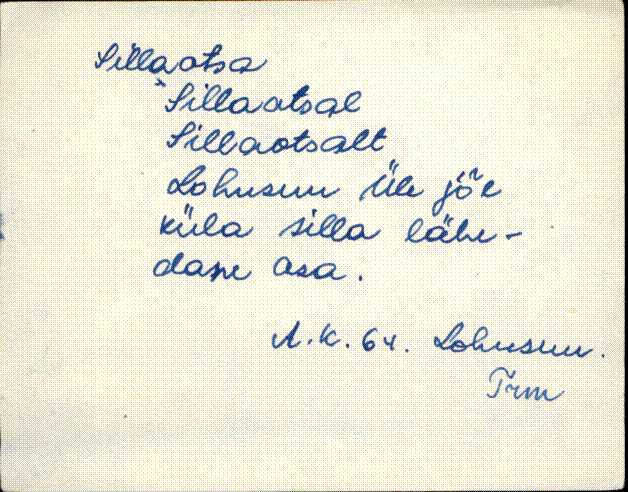 Sillaotsa
`Sillaotsal
Sillaotsalt
Lohusuu Üle jõe
küla silla lähe-
dane asa.
A. K. 64. Lohusuu.
Trm